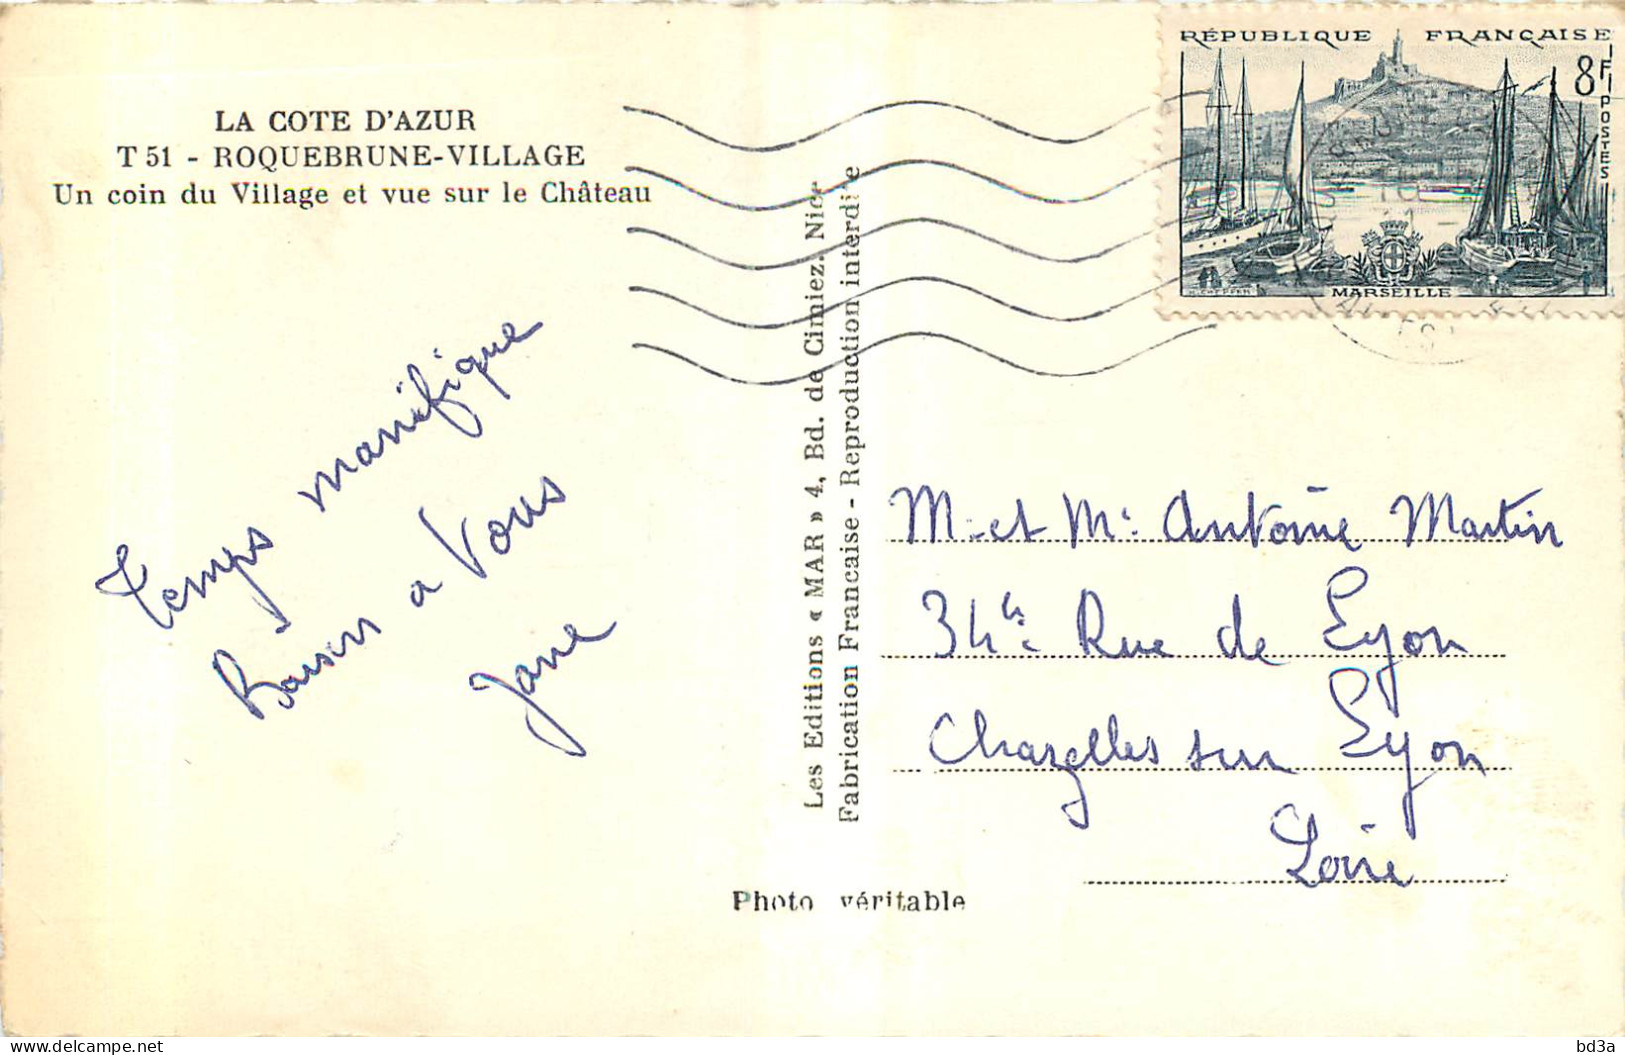 LA COTE D'AZUR
T 51 - ROQUEBRUNE-VILLAGE
Un coin du Village et vue sur le Château
RÉPUBLIQUE FRANÇAISE
8F
POSTES
MARSEILLE
Temps manifique
Baisers a Vous
Jane
Les Editions « MAR » 4, Bd. de Cimiez. Nice
Fabrication Francaise - Reproduction interdite
M. et Me Antoine Martin
34 Rue de Lyon
Chazelles sur Lyon
Loire
Photo véritable
bd3a